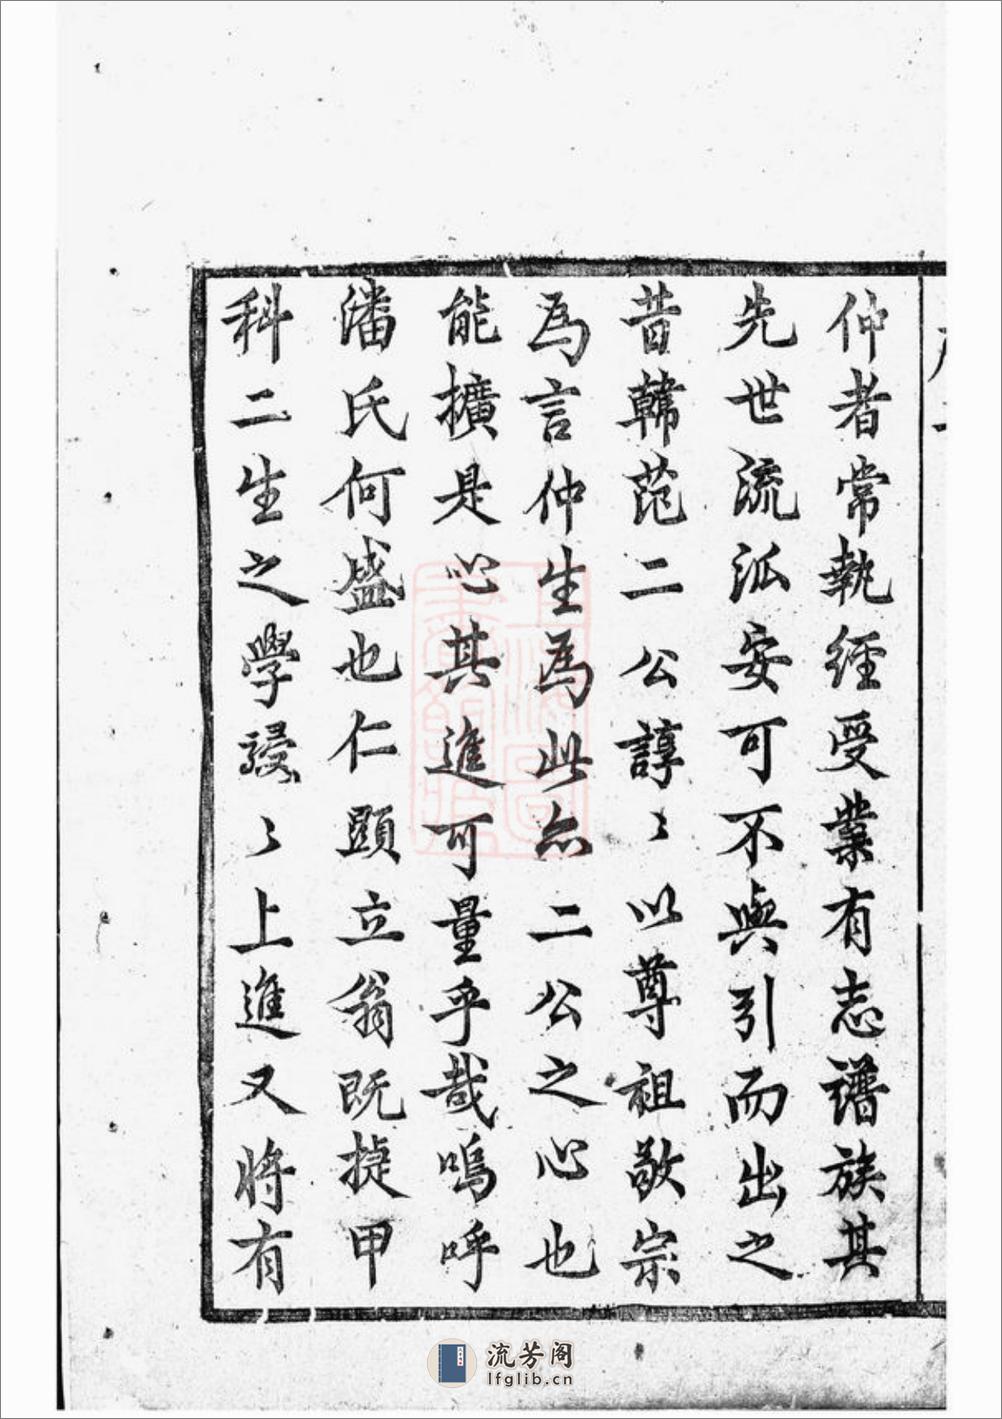 仲者常執經受業有志譜族其
先世流派安可不與引而出之
昔韓范二公諄〻以尊祖敬宗
為言仲生為此亦二公之心也
能擴是心其進可量乎哉嗚呼
潘氏何盛也仁頤立翁既捷甲
科二生之學駸〻上進又將有
流芳阁
lfglib.cn